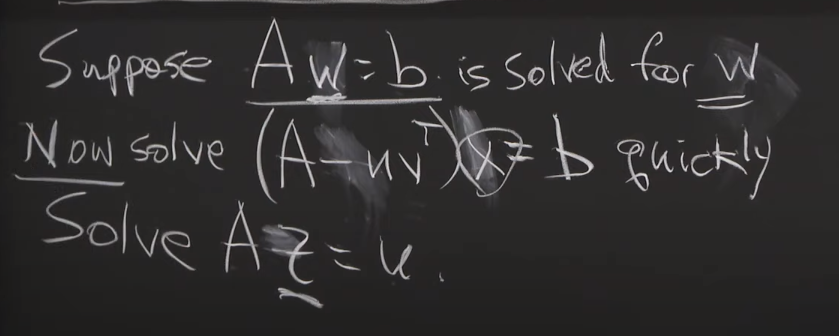 Suppose Aw = b. is solved for w
Now solve (A - uvᵀ)x = b quickly
Solve Az = u.